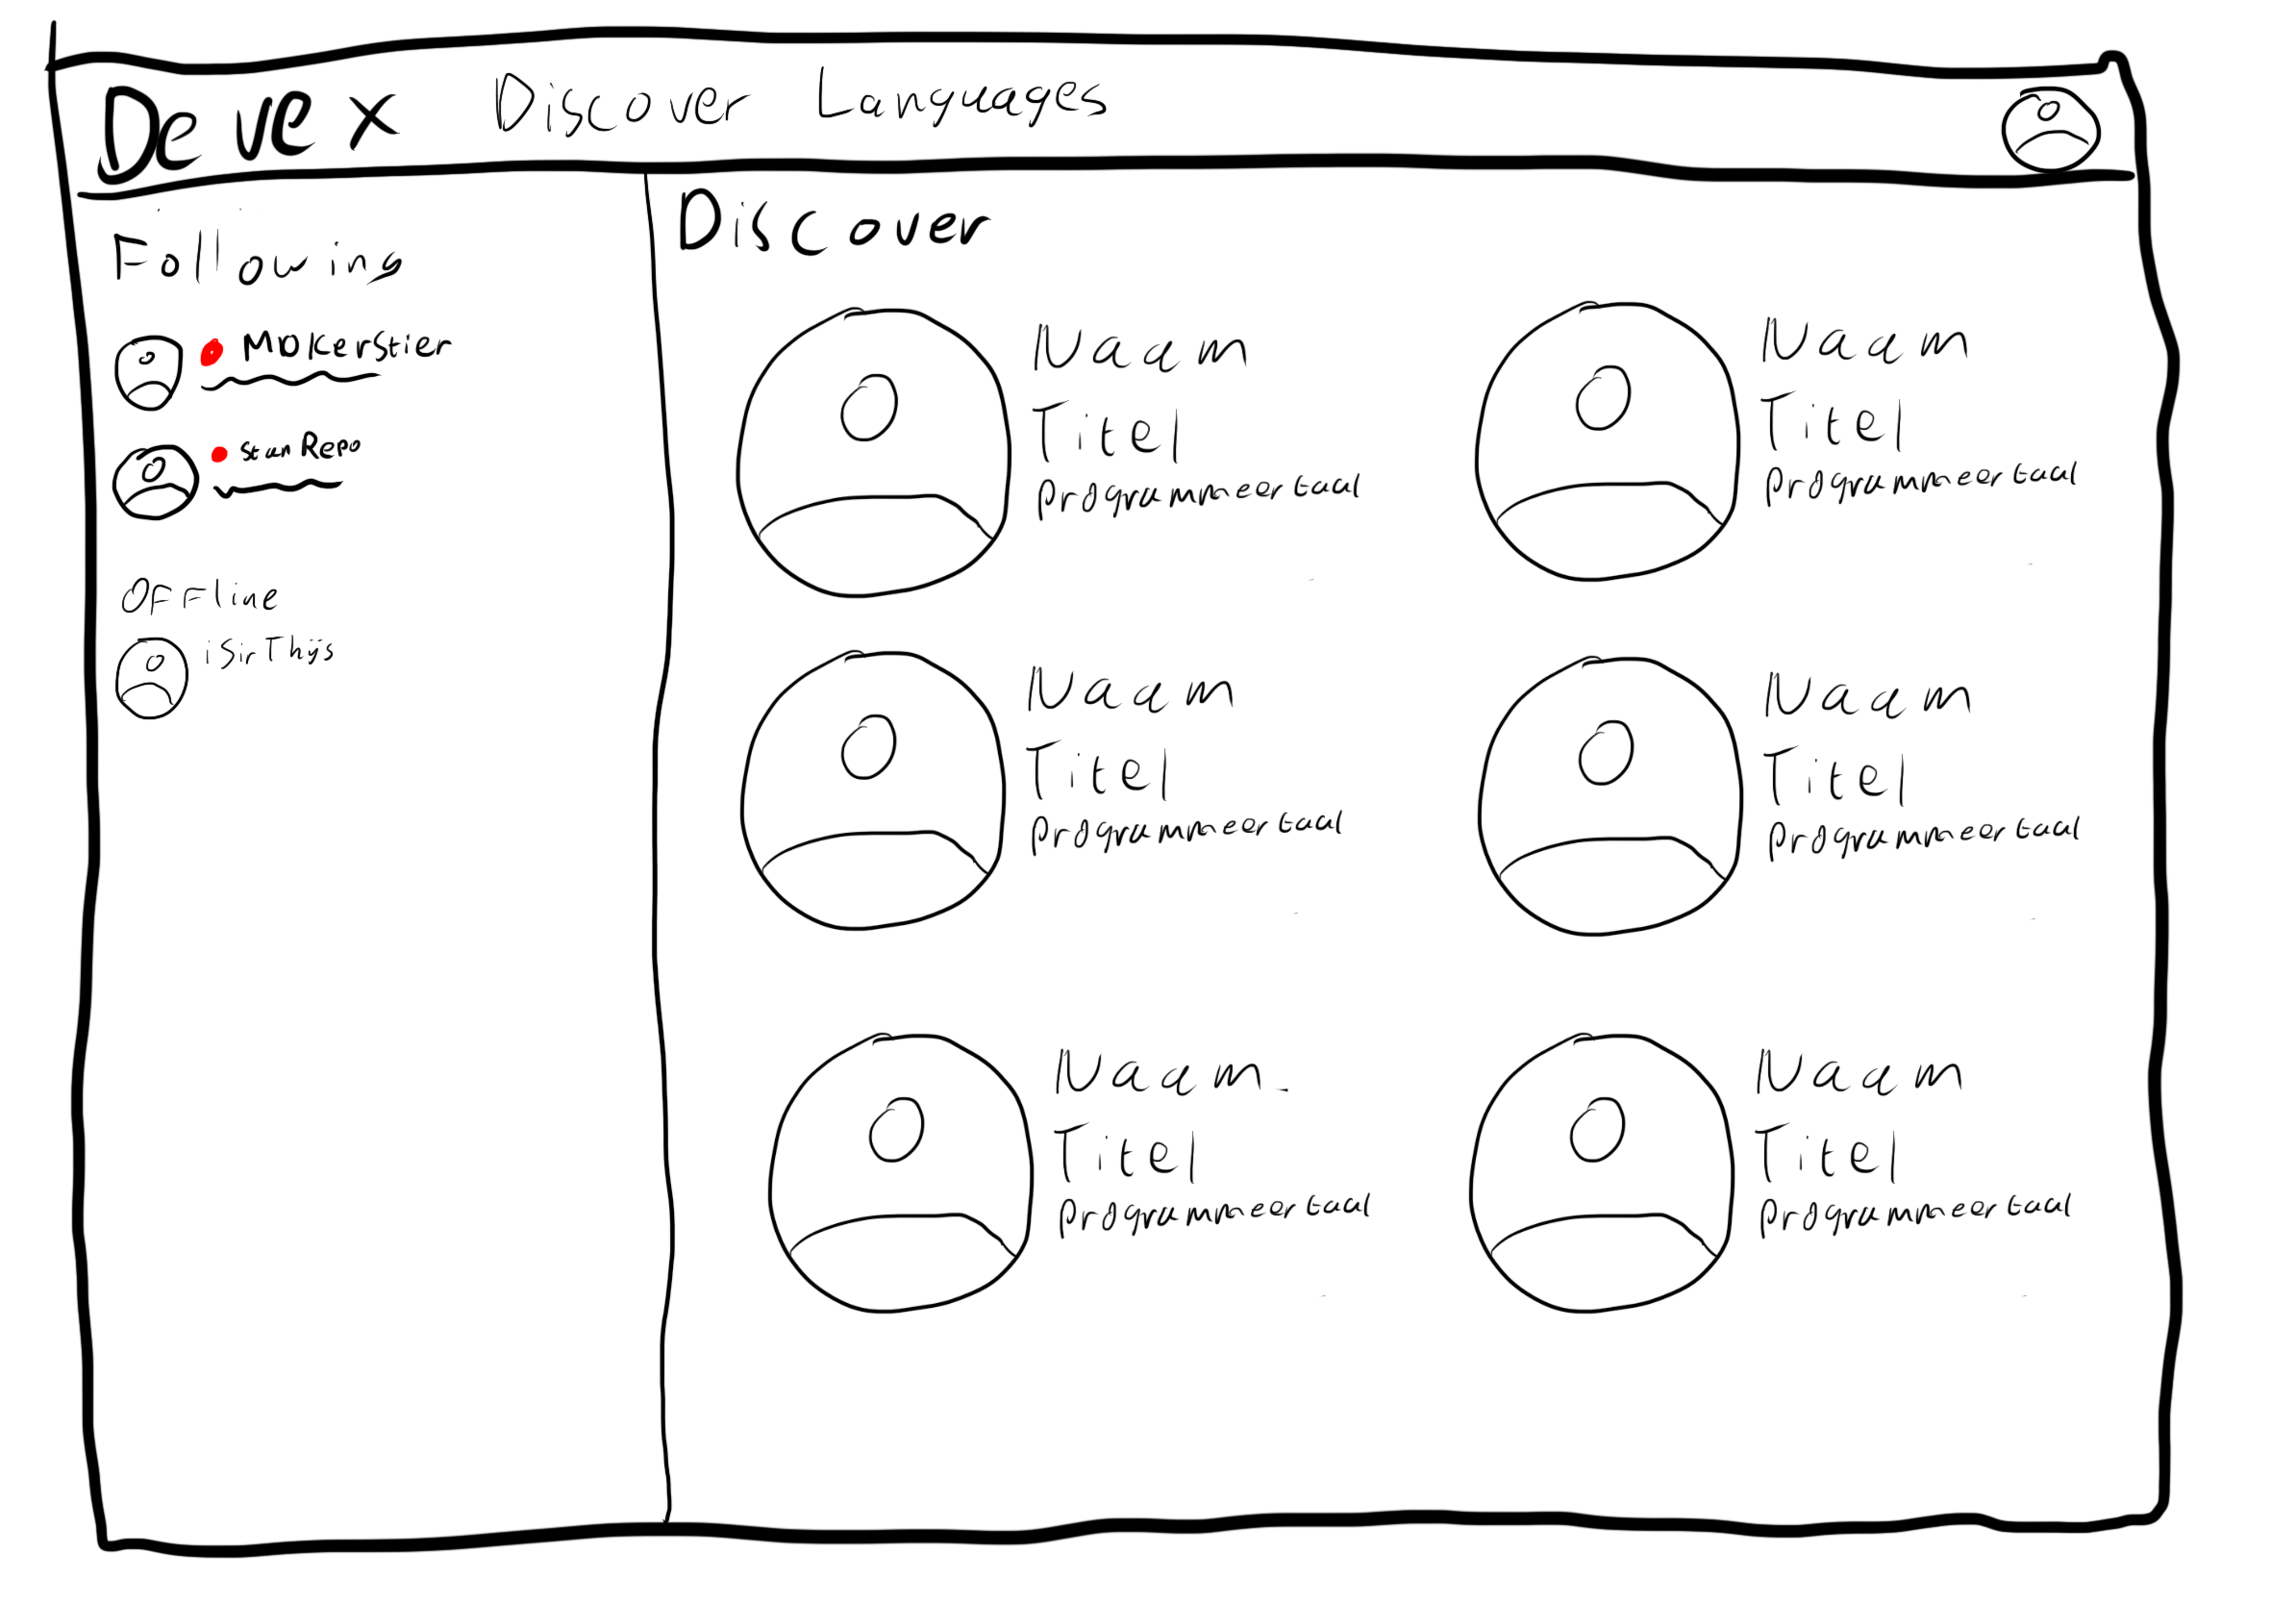 Devex Discover Languages
Following
Mokerstier
StanRepo
Offline
iSirThijs
Discover
Naam
Titel
Programmeertaal
Naam
Titel
Programmeertaal
Naam
Titel
Programmeertaal
Naam
Titel
Programmeertaal
Naam
Titel
Programmeertaal
Naam
Titel
Programmeertaal